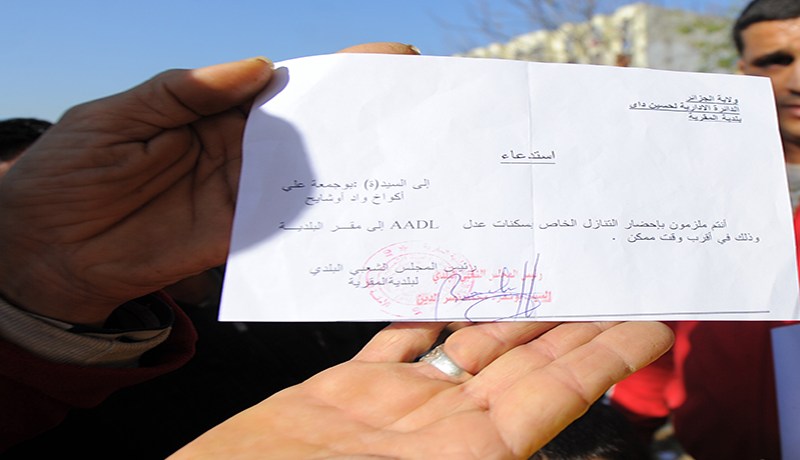 ولاية الجزائر
الدائرة الادارية لحسين داي
بلدية المقرية
استدعاء
إلى السيد(ة) :بوجمعة علي
أكواخ واد أوشايح
أنتم ملزمون بإحضار التنازل الخاص بسكنات عدل AADL إلى مقر البلدية
وذلك في أقرب وقت ممكن .
رئيس المجلس الشعبي البلدي
لبلدية المقرية
رئيس المجلس الشعبي البلدي